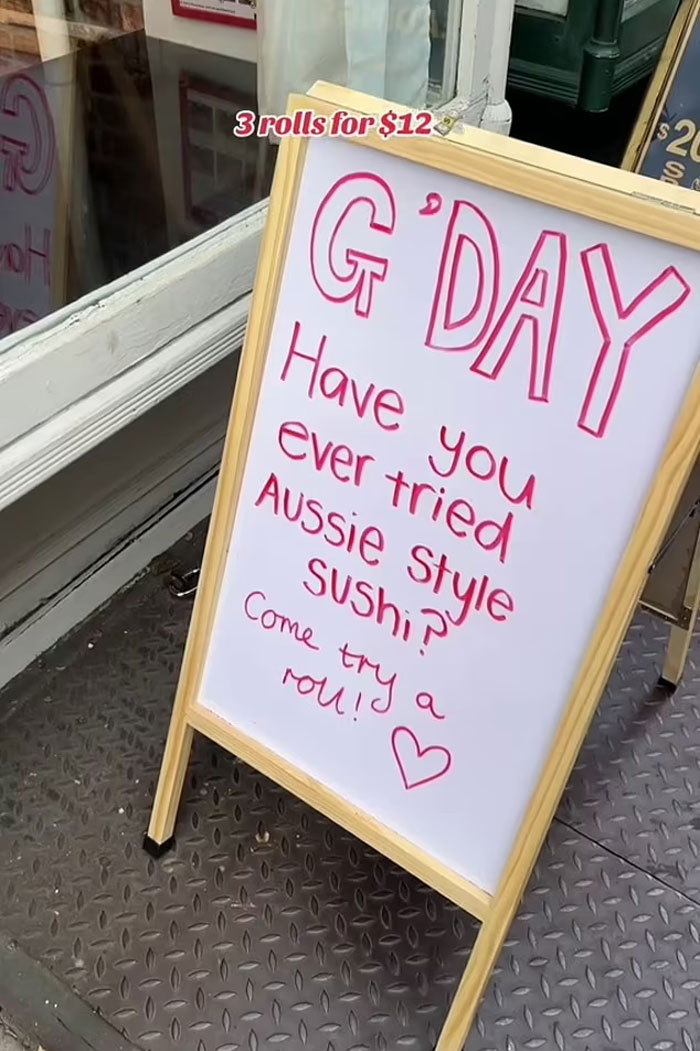 3 rolls for $12
G'DAY
Have you
ever tried
Aussie style
sushi?
Come try a
roll!
$20